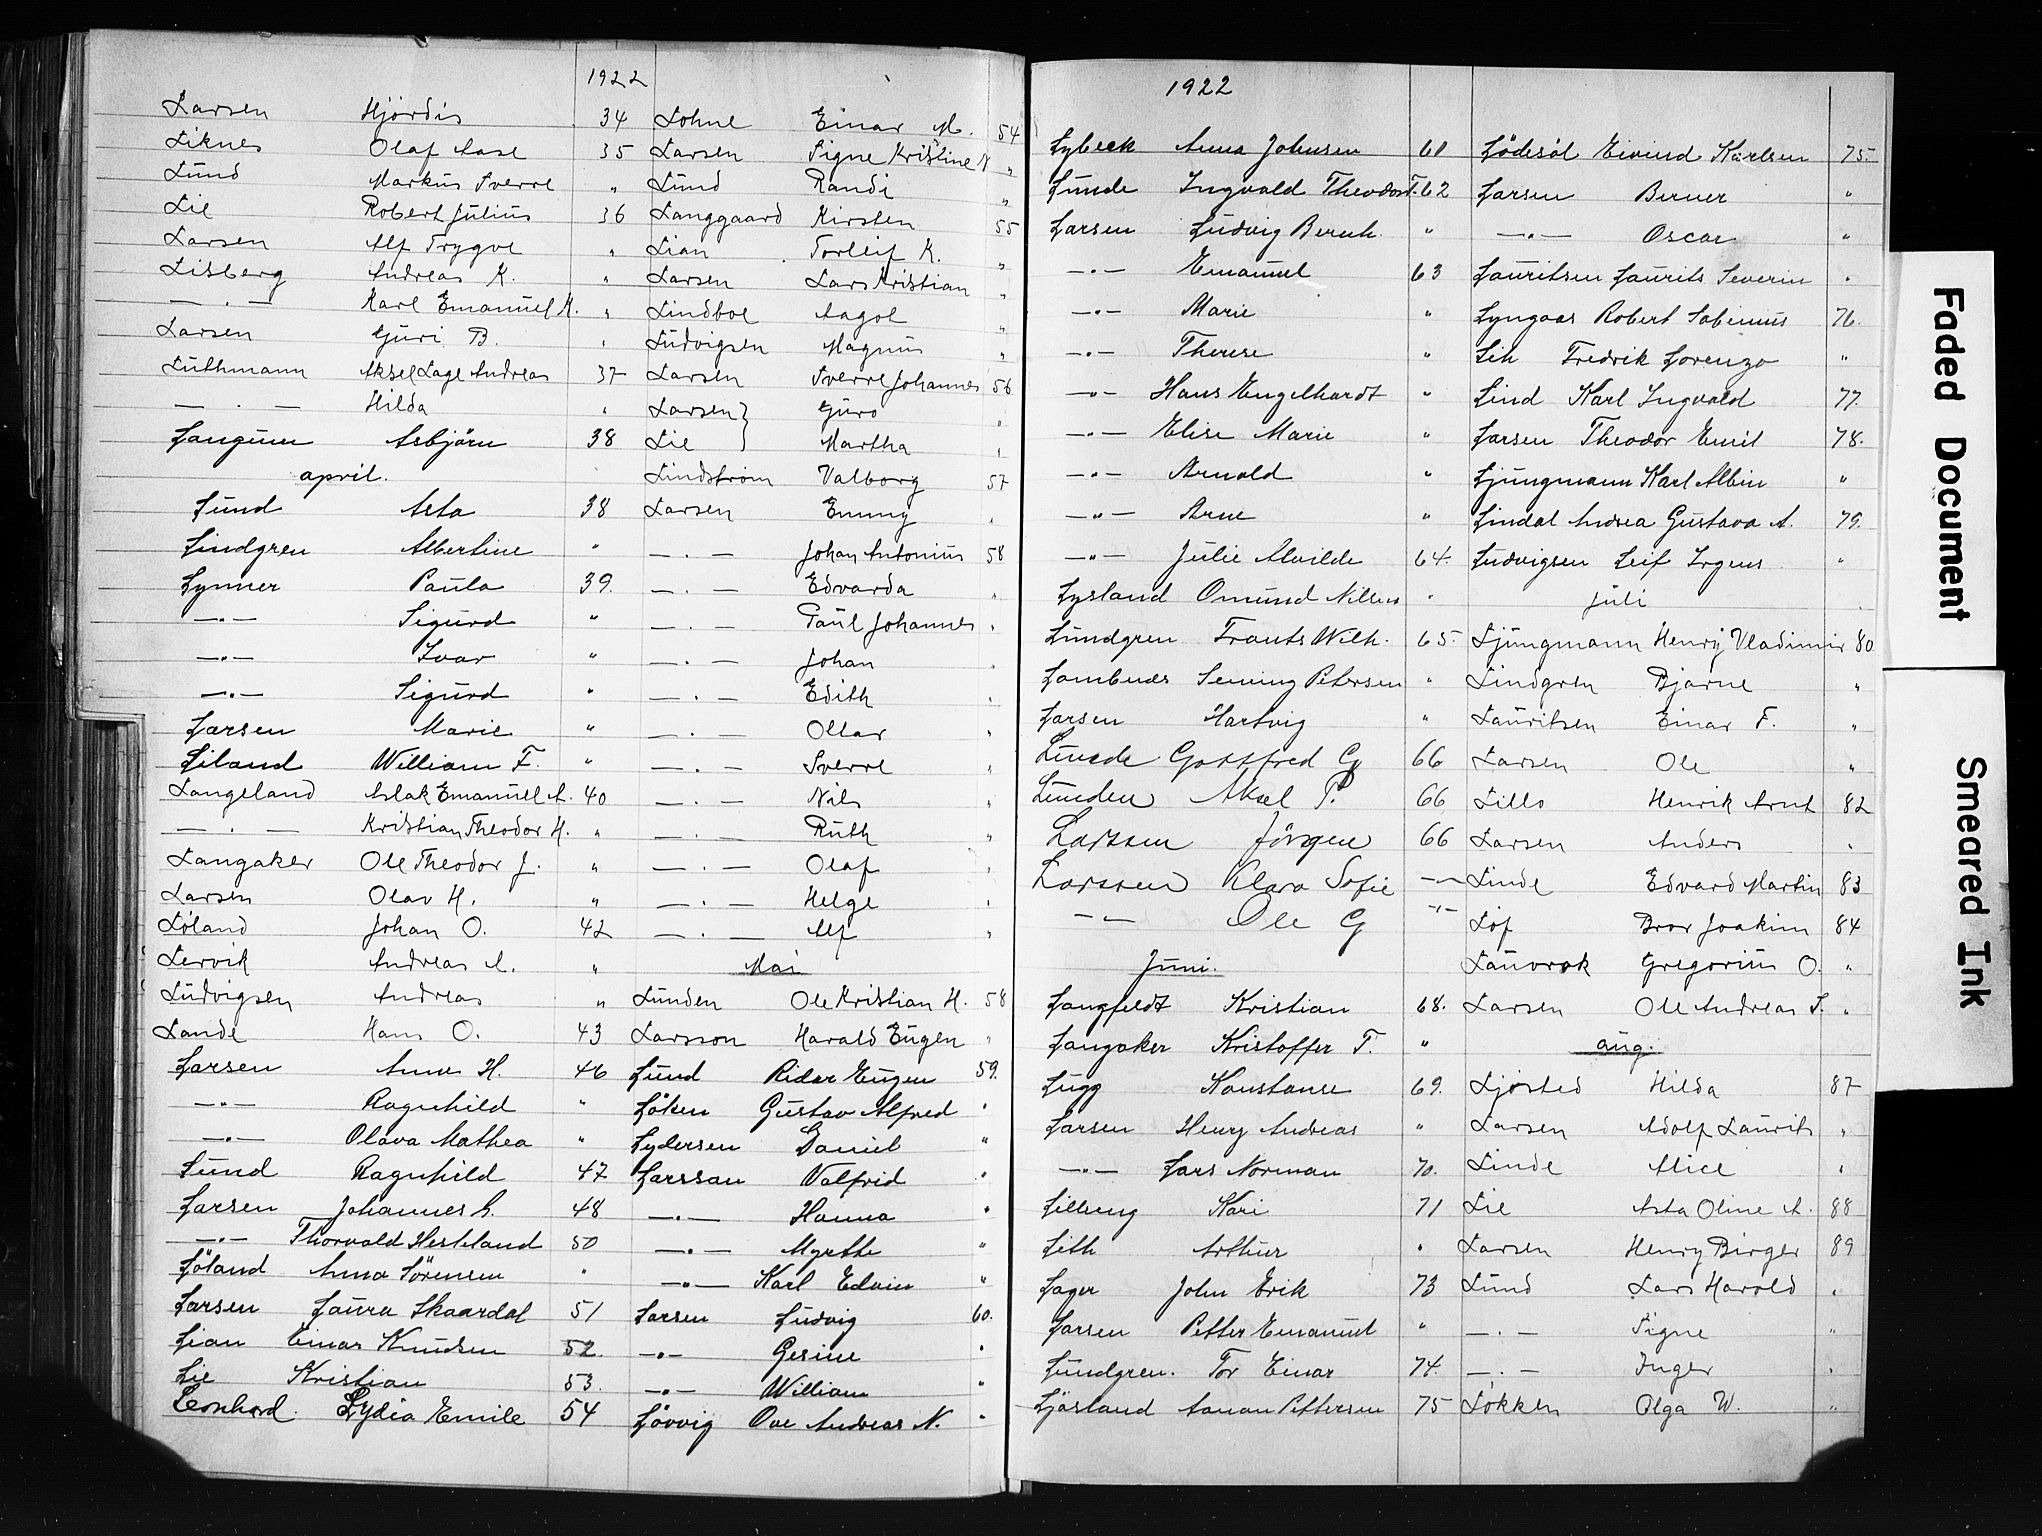 1922
Larsen Hjördis 34
Liknes Olaf Aase 35
Lund Markus Sverre "
Lie Robert Julius 36
Larsen Alf Trygve "
Lisberg Andreas K. "
— . — Karl Emanuel K. "
Larsen Guri B. "
Luthmann Aksel Lage Andreas 37
— . — Hilda "
Langum Asbjörn 38
april.
Lund Asta 38
Lindgren Albertine "
Lynner Paula 39.
—"— Sigurd "
—"— Ivar "
—"— Sigurd "
Larsen Marie "
Liland William F. "
Langeland Aslak Emanuel A. 40
— . — Kristian Theodor H. "
Langaker Ole Theodor J. "
Larsen Olav H. "
Løland Johan O. 42
Lervik Andreas A. "
Ludvigsen Andreas "
Lande Hans O. 43
Larsen Anna H. 46
—"— Ragnhild "
—"— Olava Mathea "
Lund Ragnhild 47
Larsen Johannes 48
—"— Thorvald Hesteland 50
Löland Anna Sörensen "
Larsen Laura Skaardal 51
Lian Einar Knudsen 52.
Lie Kristian 53.
Leonhard. Lydia Emile 54
Lohne Einar M. 54
Larsen Signe Kristine N "
Lund Randi "
Langgaard Kirsten 55
Lian Torleif K. "
Larsen Lars Kristian "
Lindboe Aagot "
Ludvigsen Magnus "
Larsen Sverre Johannes 56
Larsen } Guro "
Lie } Martha "
Lindstrøm Valborg 57
Larsen Emmy "
— . — Johan Antonius 58
— . — Edvarda "
— . — Paul Johannes "
— . — Johan "
— . — Edith "
— . — Ollar "
— . — Sverre "
— . — Nils "
— . — Ruth "
— . — Olaf "
— . — Helge "
— . — Alf "
Mai
Lunden Ole Kristian H. 58
Larsson Harald Eugen "
Lund Reidar Eugen 59.
Löken Gustav Alfred "
Lydersen Daniel "
Larssan Valfrid "
—"— Hanna "
—"— Myrthe "
—"— Karl Edvin "
Larsen Ludvig 60.
—"— Gesine "
—"— William "
Lövvig Ove Andreas N. "
1922
Lybeck Anna Johnsen 61
Lunde Ingvald Theodor T. 62
Larsen Ludvig Bernh. "
—"— Emanuel 63
—"— Marie "
—"— Therese "
—"— Hans Engelhardt "
—"— Elise Marie "
—"— Arnold "
—"— Arne "
—"— Julie Alvilde 64.
Lysland Omund Nilsen "
Lundgren Frants Wilh. 65
Lambnes Seming Petersen "
Larsen Hartvig "
Lunde Gottfred G 66
Lunden Aksel P. 66
Larssen Jörgen 66
Larssen Klara Sofie —"—
—"— Ole G —"—
Juni.
Langfeldt Kristian 68.
Langaker Kristoffer T. "
Lugg Konstanse 69.
Larsen Henry Andreas "
—"— Lars Norman 70.
Lilleng Kari 71
Lith Arthur "
Lager John Erik 73
Larsen Petter Emanuel "
Lundgren. Tor Einar 74.
Ljösland Aanan Pettersen 75
Lödesöl Eivind Karlsen 75.
Larsen Berner "
—"— Oscar "
Lauritsen Laurits Severin "
Lyngaas Robert Sabinius 76.
Lih Fredrik Lorenzo "
Lind Karl Ingvald 77.
Larsen Theodor Emil 78.
Ljungmann Karl Albin "
Lindal Andrea Gustava A. 79.
Ludvigsen Leif Irgens "
juli
Ljungmann Henry Vladimir 80
Lindgren Bjarne "
Lauritsen Einar F. "
Larsen Ole "
Lillo Henrik Arnt 82
Larsen Anders "
Linde Edvard Martin 83
Löf Bror Joakim 84
Lauvrak Gregorius O. "
Larsen Ole Andreas S. "
aug.
Ljøsted Hilda 87
Larsen Adolf Laurits "
Linde Alice "
Lie Asta Oline A. 88
Larsen Henry Birger 89
Lund Lars Harald "
— . — Signe "
— . — Inger "
Løkken Olga W. "
Faded Document
Smeared Ink